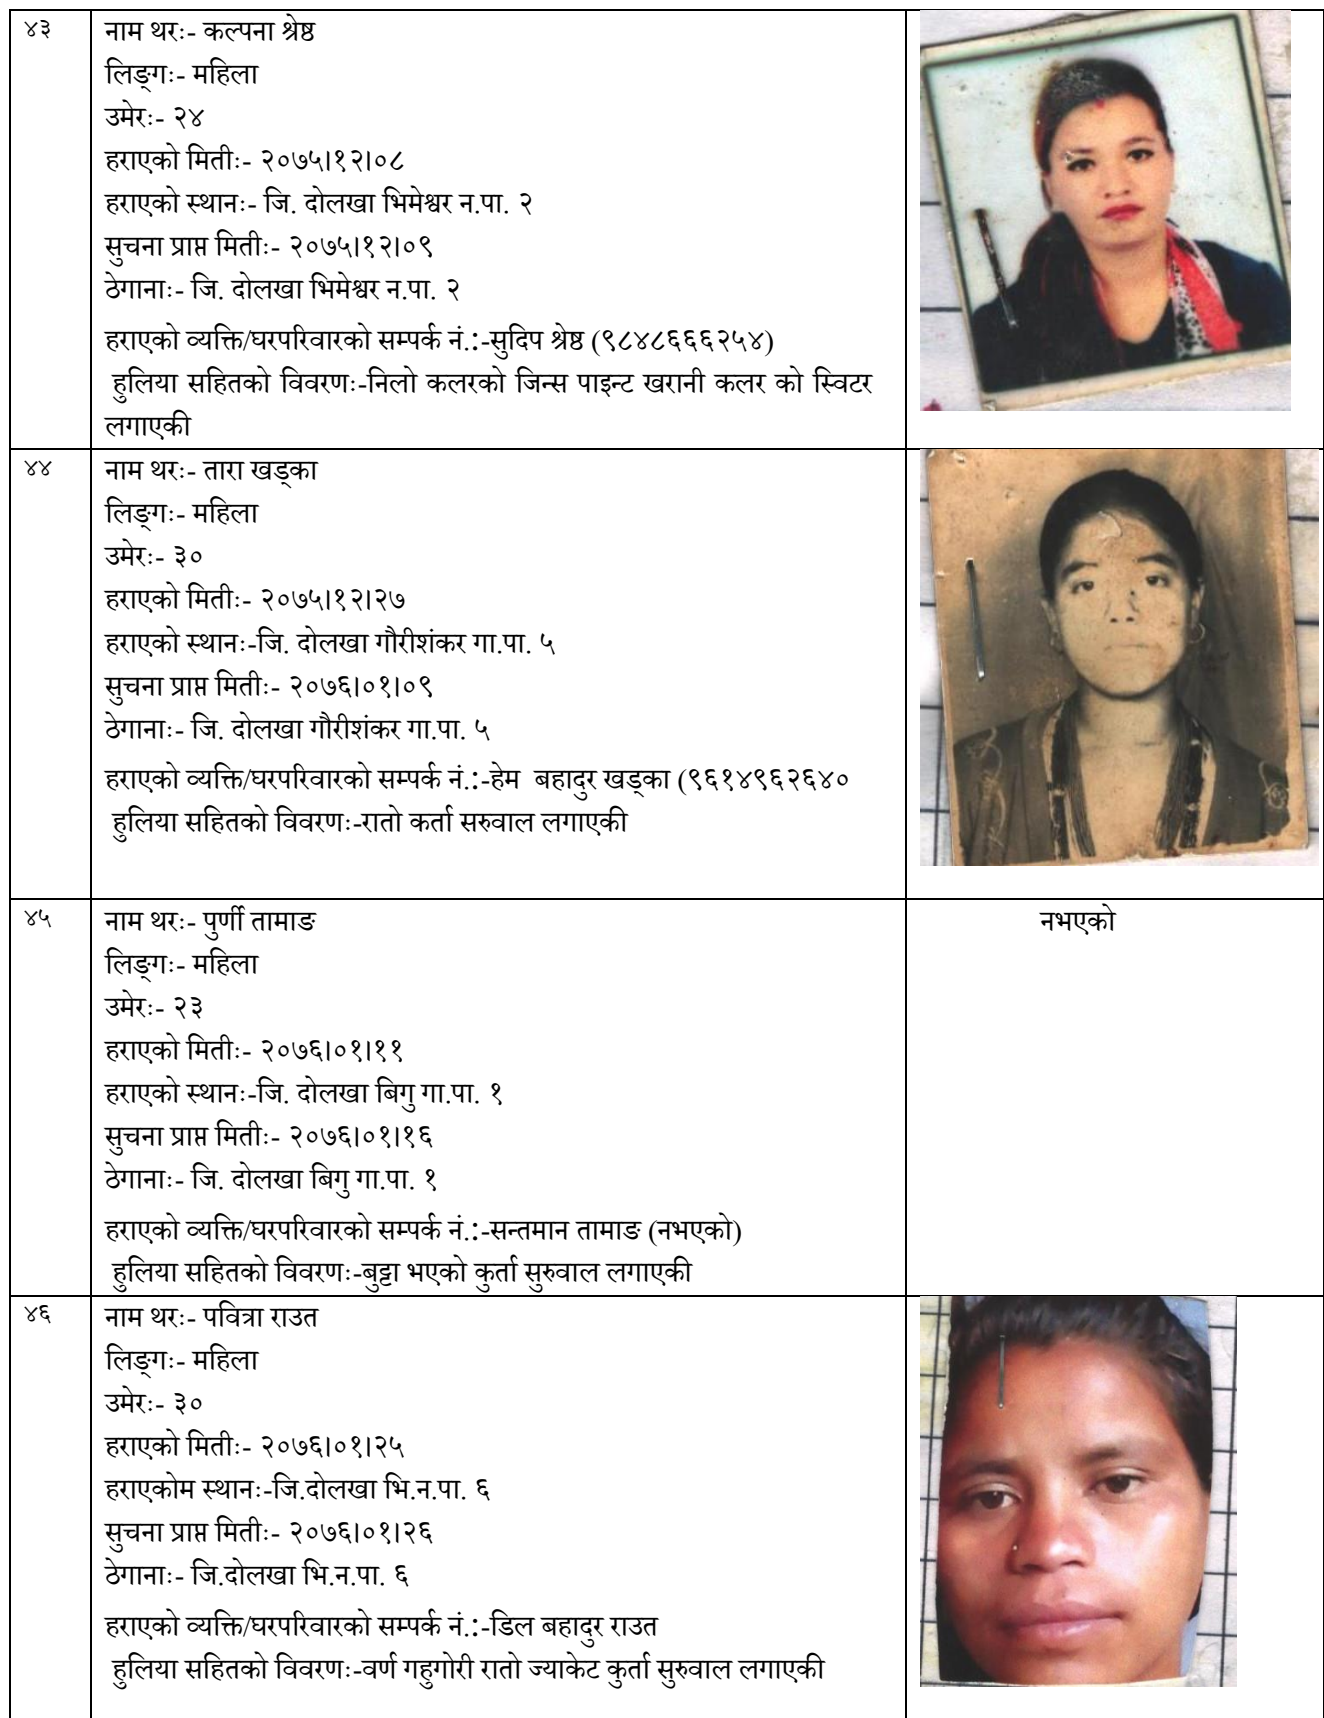 ४३
नाम थरः- कल्पना श्रेष्ठ
लिङ्गः- महिला
उमेरः- २४
हराएको मितीः- २०७५।१२।०८
हराएको स्थानः- जि. दोलखा भिमेश्वर न.पा. २
सुचना प्राप्त मितीः- २०७५।१२।०९
ठेगानाः- जि. दोलखा भिमेश्वर न.पा. २
हराएको व्यक्ति/घरपरिवारको सम्पर्क नं.:-सुदिप श्रेष्ठ (९८४८६६६२५४)
हुलिया सहितको विवरणः-निलो कलरको जिन्स पाइन्ट खरानी कलर को स्विटर
लगाएकी
४४
नाम थरः- तारा खड्का
लिङ्गः- महिला
उमेरः- ३०
हराएको मितीः- २०७५।१२।२७
हराएको स्थानः-जि. दोलखा गौरीशंकर गा.पा. ५
सुचना प्राप्त मितीः- २०७६।०१।०९
ठेगानाः- जि. दोलखा गौरीशंकर गा.पा. ५
हराएको व्यक्ति/घरपरिवारको सम्पर्क नं.:-हेम  बहादुर खड्का (९६१४९६२६४०
हुलिया सहितको विवरणः-रातो कर्ता सरुवाल लगाएकी
४५
नाम थरः- पुर्णी तामाङ
नभएको
लिङ्गः- महिला
उमेरः- २३
हराएको मितीः- २०७६।०१।११
हराएको स्थानः-जि. दोलखा बिगु गा.पा. १
सुचना प्राप्त मितीः- २०७६।०१।१६
ठेगानाः- जि. दोलखा बिगु गा.पा. १
हराएको व्यक्ति/घरपरिवारको सम्पर्क नं.:-सन्तमान तामाङ (नभएको)
हुलिया सहितको विवरणः-बुट्टा भएको कुर्ता सुरुवाल लगाएकी
४६
नाम थरः- पवित्रा राउत
लिङ्गः- महिला
उमेरः- ३०
हराएको मितीः- २०७६।०१।२५
हराएकोम स्थानः-जि.दोलखा भि.न.पा. ६
सुचना प्राप्त मितीः- २०७६।०१।२६
ठेगानाः- जि.दोलखा भि.न.पा. ६
हराएको व्यक्ति/घरपरिवारको सम्पर्क नं.:-डिल बहादुर राउत
हुलिया सहितको विवरणः-वर्ण गहुगोरी रातो ज्याकेट कुर्ता सुरुवाल लगाएकी